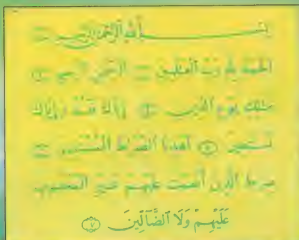 بسم الله الرحمن الرحيم
الحمد لله رب العالمين الرحمن الرحيم
مالك يوم الدين إياك نعبد وإياك
نستعين اهدنا الصراط المستقيم
صراط الذين أنعمت عليهم غير المغضوب
عَلَيْهِمْ وَلَا الضَّالِّينَ